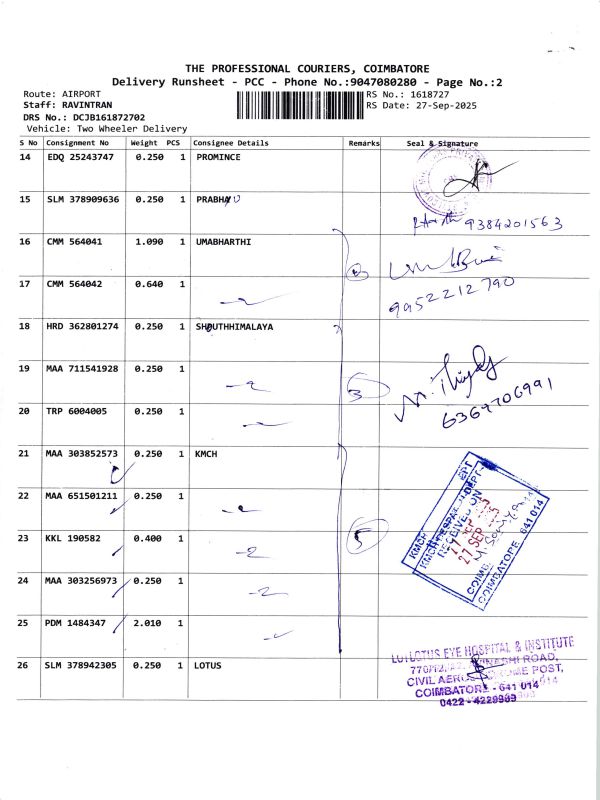 THE PROFESSIONAL COURIERS, COIMBATORE
Delivery Runsheet - PCC - Phone No.:9047080280 - Page No.:2
Route: AIRPORT
Staff: RAVINTRAN
DRS No.: DCJB161872702
Vehicle: Two Wheeler Delivery
RS No.: 1618727
RS Date: 27-Sep-2025
S No Consignment No Weight PCS Consignee Details Remarks Seal & Signature
14 EDQ 25243747 0.250 1 PROMINCE
15 SLM 378909636 0.250 1 PRABHU
9384201563
16 CMM 564041 1.090 1 UMABARTHI
17 CMM 564042 0.640 1
9952212790
18 HRD 362801274 0.250 1 SHOUTHHIMALAYA
19 MAA 711541928 0.250 1 3
20 TRP 6004005 0.250 1
6369706991
21 MAA 303852573 0.250 1 KMCH
22 MAA 651501211 0.250 1
23 KKL 190582 0.400 1 5
24 MAA 303256973 0.250 1
25 PDM 1484347 2.010 1
KMCH
RECEIVED ON
27 SEP
COIMBATORE - 641 014
26 SLM 378942305 0.250 1 LOTUS
LOTUS EYE HOSPITAL & INSTITUTE
ROAD,
POST,
COIMBATORE - 641 014
0422 - 4229999